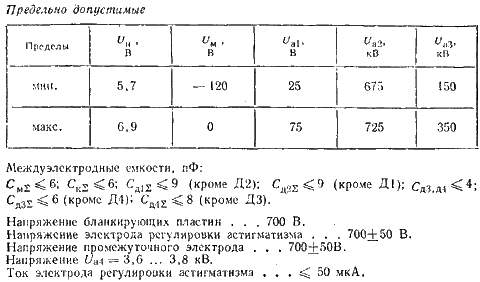 Предельно допустимые
Пределы Uн, В Uм, В Uа1, В Uа2, кВ Uа3, кВ
мин. 5,7 —120 25 675 150
макс. 6,9 0 75 725 350
Междуэлектродные емкости, пФ:
СмΣ ⩽ 6; СкΣ ⩽ 6; Сд1Σ ⩽ 9 (кроме Д2); Сд2Σ ⩽ 9 (кроме Д1); Сд3,д4 ⩽ 4;
Сд3Σ ⩽ 6 (кроме Д4); Сд4Σ ⩽ 8 (кроме Д3).
Напряжение бланкирующих пластин . . . 700 В.
Напряжение электрода регулировки астигматизма . . . 700±50 В.
Напряжение промежуточного электрода . . . 700±50В.
Напряжение Uа4 = 3,6 ... 3,8 кВ.
Ток электрода регулировки астигматизма . . . ⩽ 50 мкА.